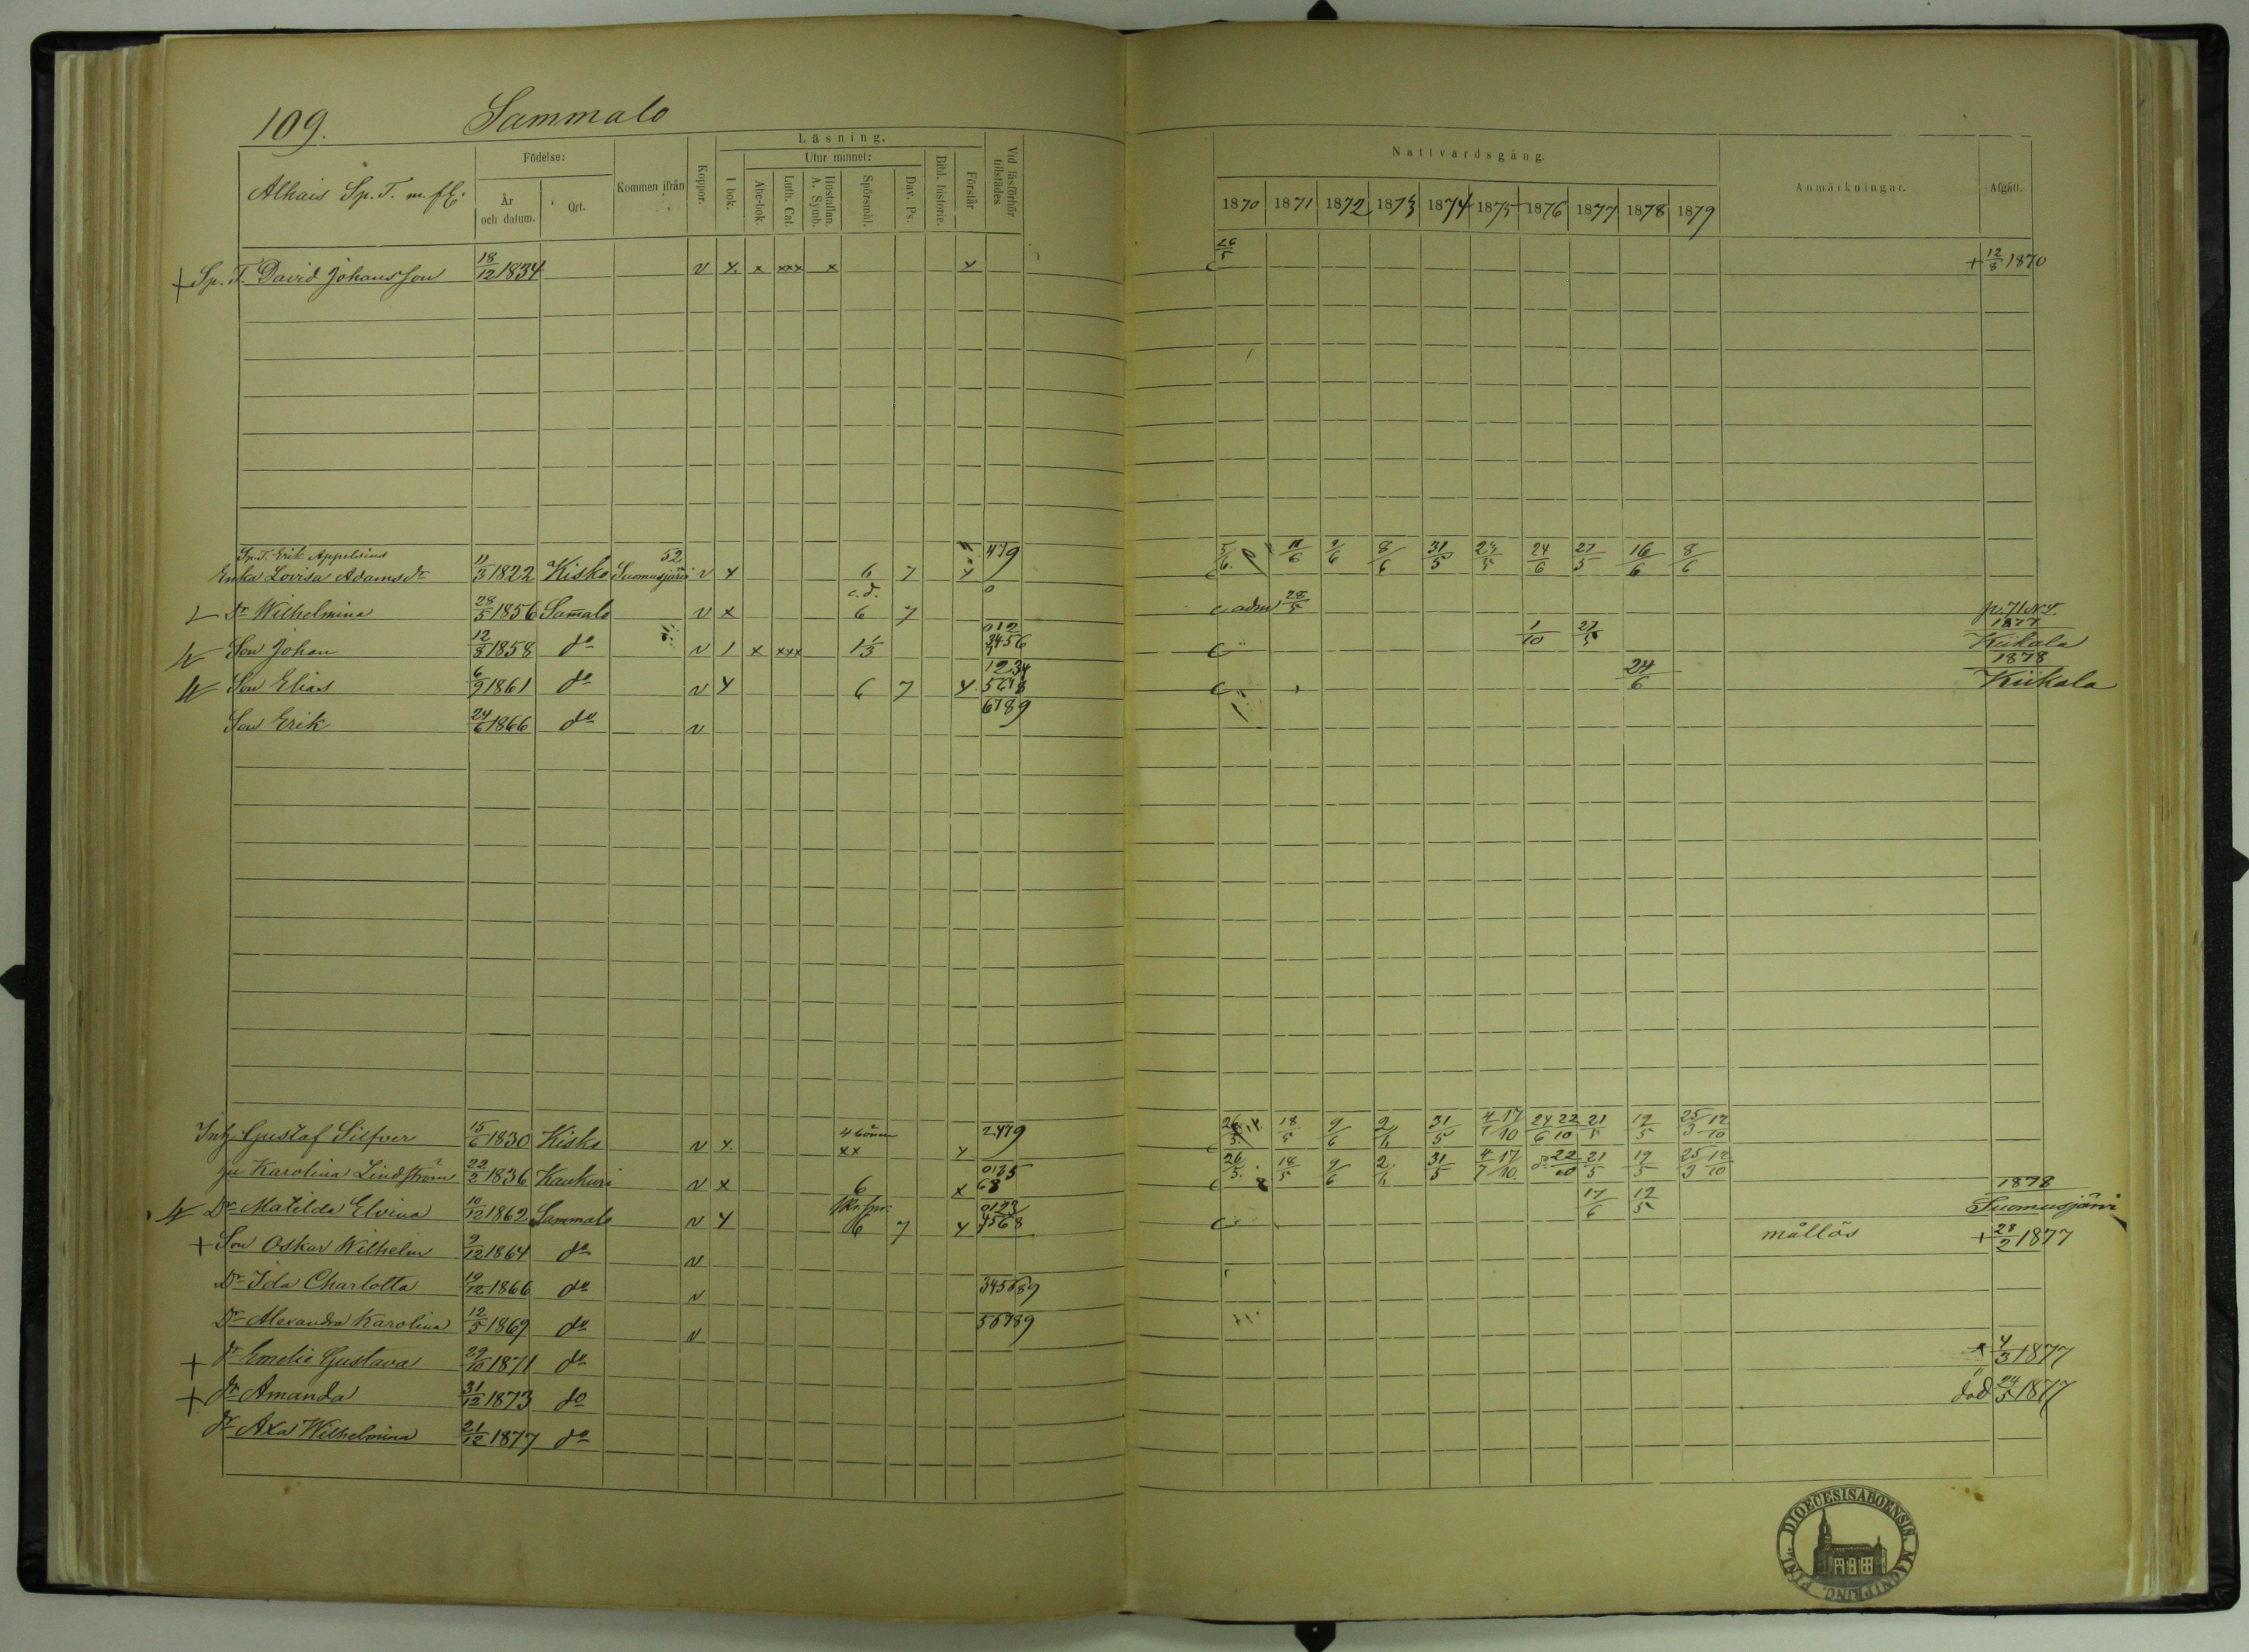 109. Sammalo
Alhais Sp. T. m. fl.
Födelse:
År och datum.
Ort.
Kommen ifrån
Koppor.
Läsning.
I bok.
Utur minnet:
Abc-bok.
Luth. Cat.
Hustaflan. A. Symb.
Spörsmål.
Dav. Ps.
Bibl. historie.
Förstår
Vid läsförhör tillstädes
Nattvardsgång.
1870 1871 1872 1873 1874 1875 1876 1877 1878 1879
Anmärkningar.
Afgått.
+ Sp. T. David Johansson 18/12 1834 v x x xxx x x 26/5 + 12/8 1870
Sp. T. Erik Appelsins 52 479
Enka Lovisa Adamsdr 11/3 1822 Kisko Suomusjärvi v x 6 7 x 5/6 11/6 9/6 8/6 31/5 24/6 27/5 16/6 8/6
Dr Wilhelmina 28/5 1856 Samalo v x c.d. 6 7 0 adm 28/5
Son Johan 12/8 1858 do v 1 x xxx 1 1/3 012 3456 1/10 27/5 1877 Kiikala
Son Elias 6/9 1861 do v x 6 7 x 1234 5678 24/6 1878 Kiikala
Son Erik 24/6 1866 do v 6789
Inh. Gustaf Silfver 15/6 1830 Kisko v x xx x 2479 26/5 18/5 9/6 2/6 31/5 4/7 17/10 24/6 22/10 21/5 19/5 25/3 12/10
Karolina Lindström 22/2 1836 Kaukuri v x 6 x 0135 68 26/5 18/5 9/6 2/6 31/5 4/7 17/10 do 22/10 21/5 19/5 25/3 12/10
Dr Matilda Elvina 10/12 1862 Sammalo v x 6 7 x 0123 4568 17/6 12/5 1878 Suomusjärvi
+ Son Oskar Wilhelm 9/12 1864 do v mållös + 28/2 1877
Dr Ida Charlotta 19/12 1866 do v 345689
Dr Alexandra Karolina 12/5 1869 do v 56789
+ dr Emelie Gustava 29/10 1871 do + 4/3 1877
+ dr Amanda 31/12 1873 do död 24/5 1877
dr Axa Wilhelmina 21/12 1877 do
DIOECESIS ABOENSIS